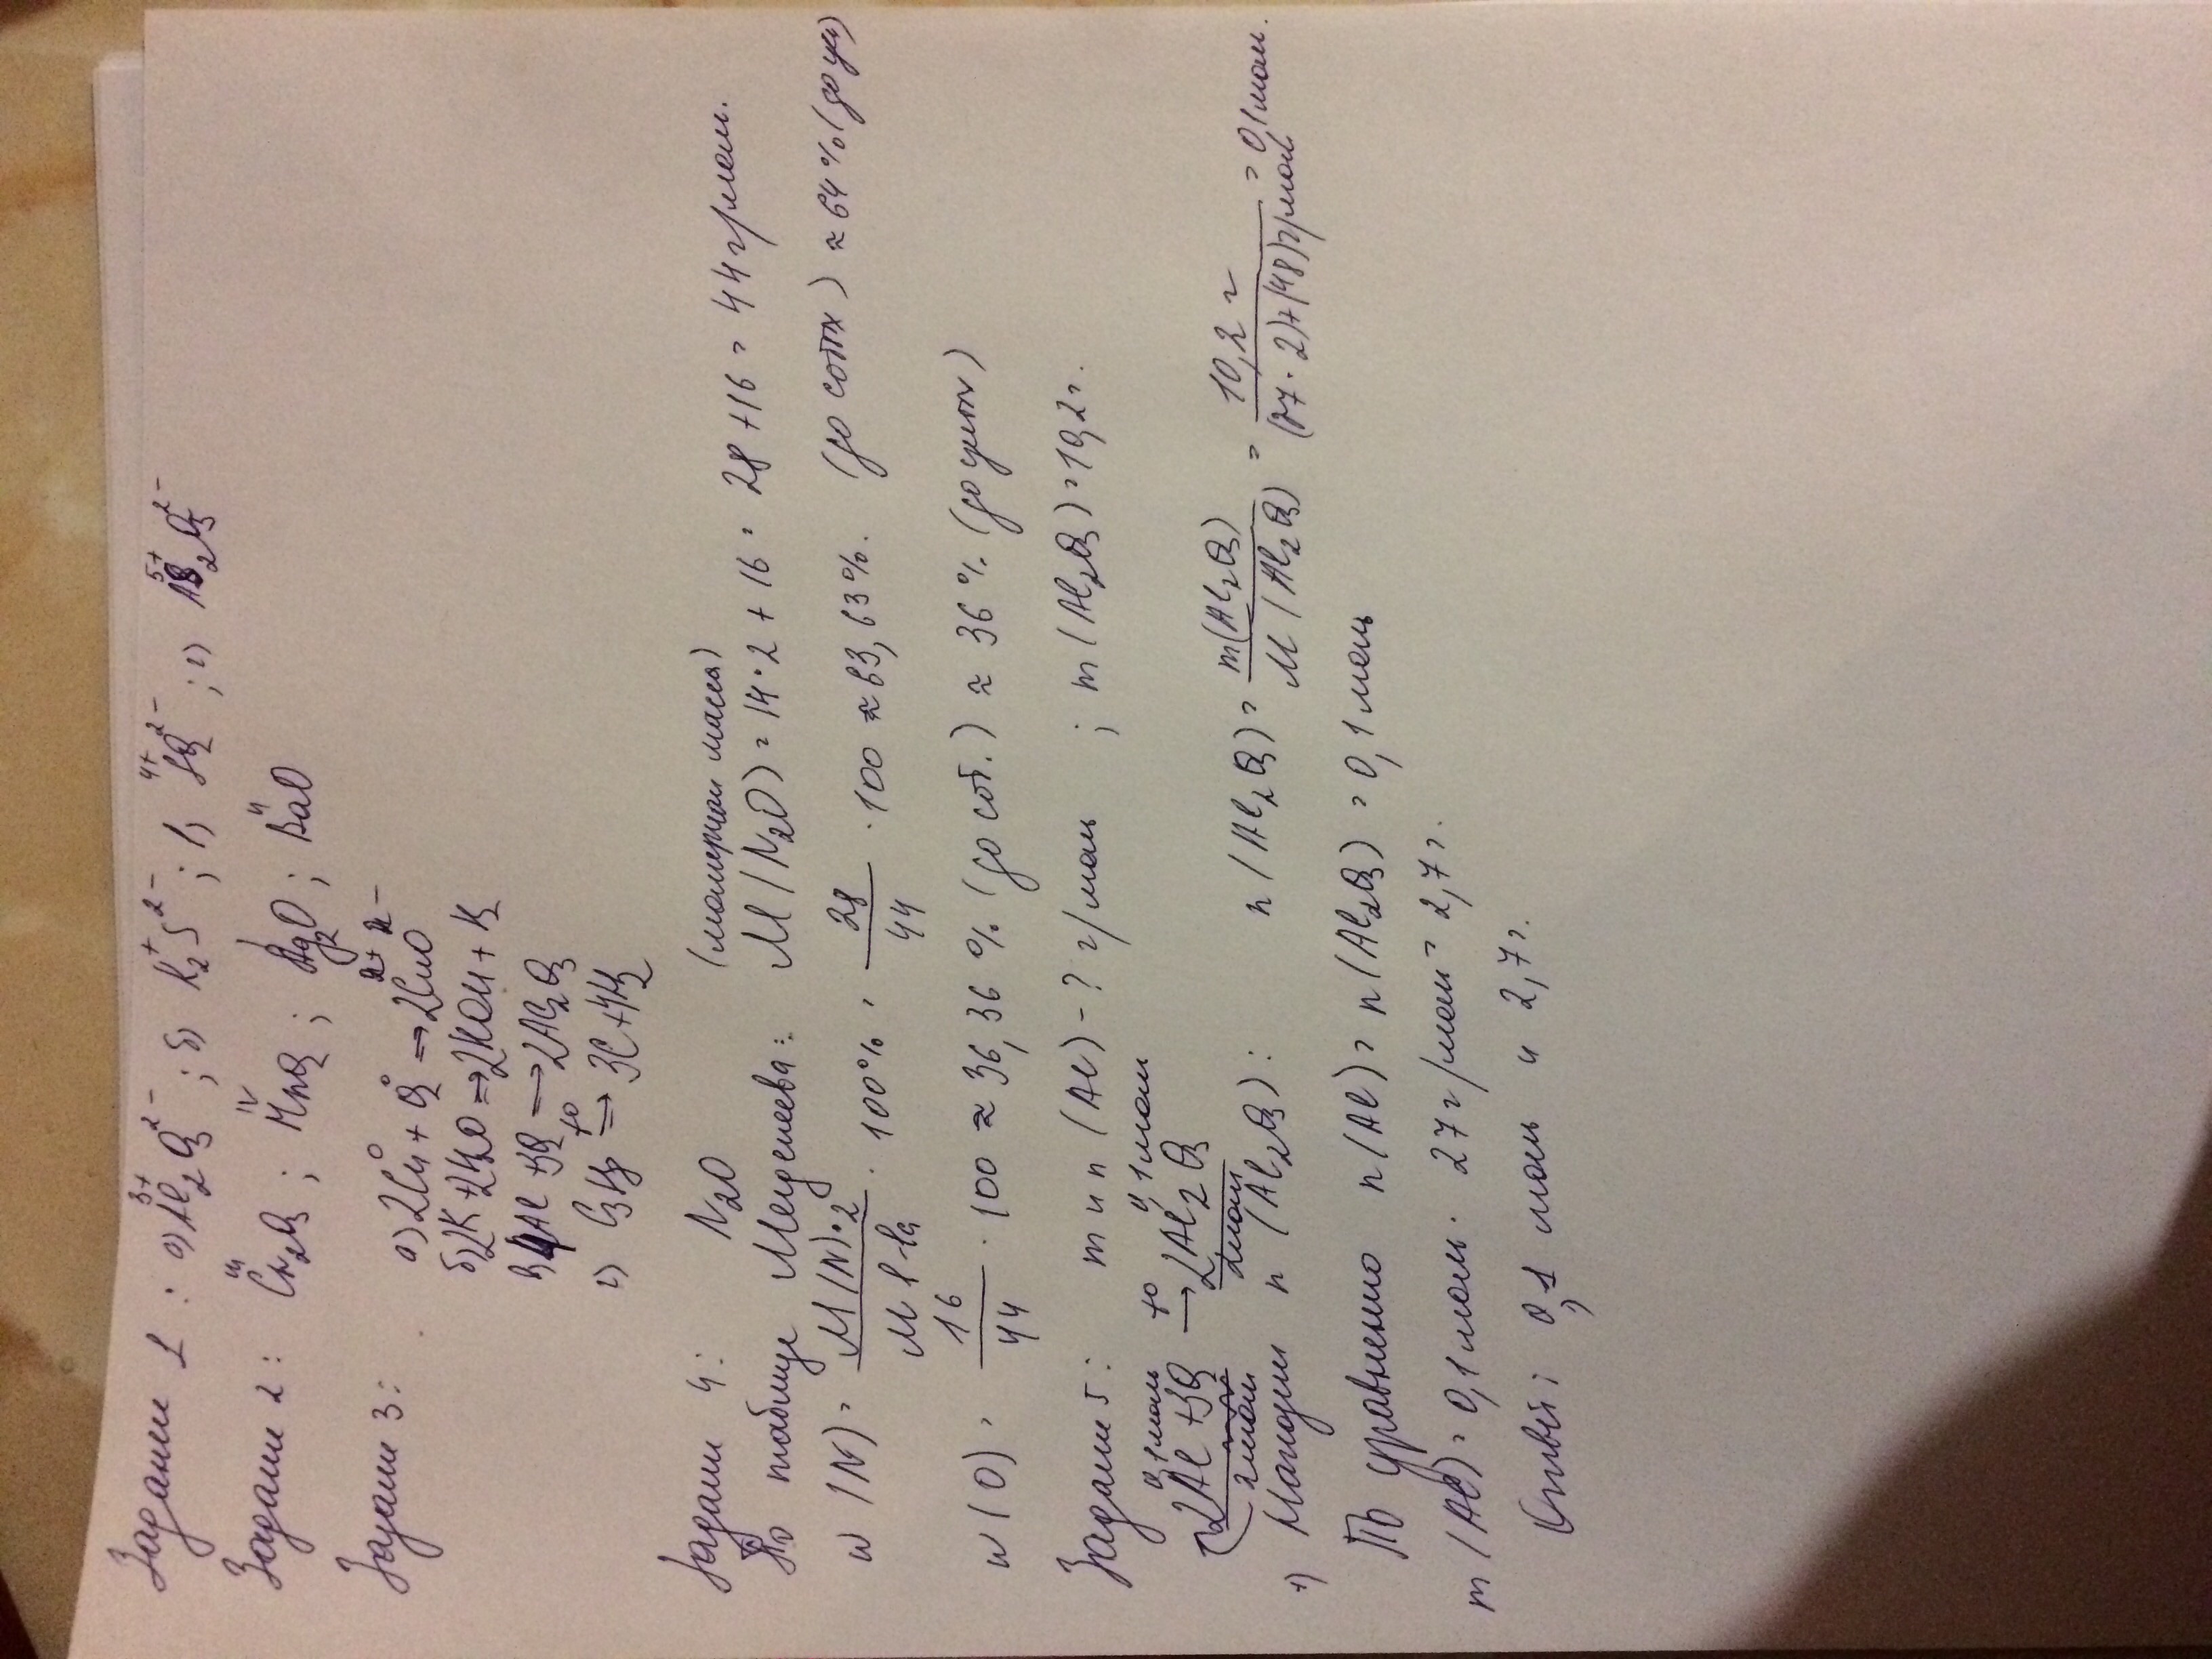 Задание 1 : а) Al₂³⁺O₃²⁻ ; б) K₂⁺S²⁻ ; в) S⁴⁺O₂²⁻ ; г) As₂⁵⁺O₅²⁻
Задание 2 : Cr₂ᴵᴵᴵO₃ ; MnᴵⱽO₂ ; Ag₂O ; BaᴵᴵO
Задание 3 :
а) 2Cu⁰ + O₂⁰ → 2Cu²⁺O²⁻
б) 2K + 2H₂O → 2KOH + H₂
в) 4Al + 3O₂ → 2Al₂O₃
г) C₃H₈ t° → 3C + 4H₂
Задание 4 : N₂O (молярная масса)
По таблице Менделеева : M(N₂O) = 14·2 + 16 = 28 + 16 = 44 г/моль.
w(N) = M(N)·2 / M в-ва · 100% = 28/44 · 100 ≈ 63,63%. (до сотых) ≈ 64% (до
w(O) = 16/44 · 100 ≈ 36,36% (до сот.) ≈ 36% (до
Задание 5 : m и n (Al) - ? г/моль ; m(Al₂O₃) = 10,2 г.
0,1 моль 0,1 моль
2Al + 3O₂ t° → 2Al₂O₃
2 моль 2 моль
1) Находим n (Al₂O₃) : n(Al₂O₃) = m(Al₂O₃) / M(Al₂O₃) = 10,2 г / (27·2)+(48) г/моль = 0,1 моль.
По уравнению n(Al) = n(Al₂O₃) = 0,1 моль
m(Al) = 0,1 моль · 27 г/моль = 2,7 г.
Ответ : 0,1 моль и 2,7 г.